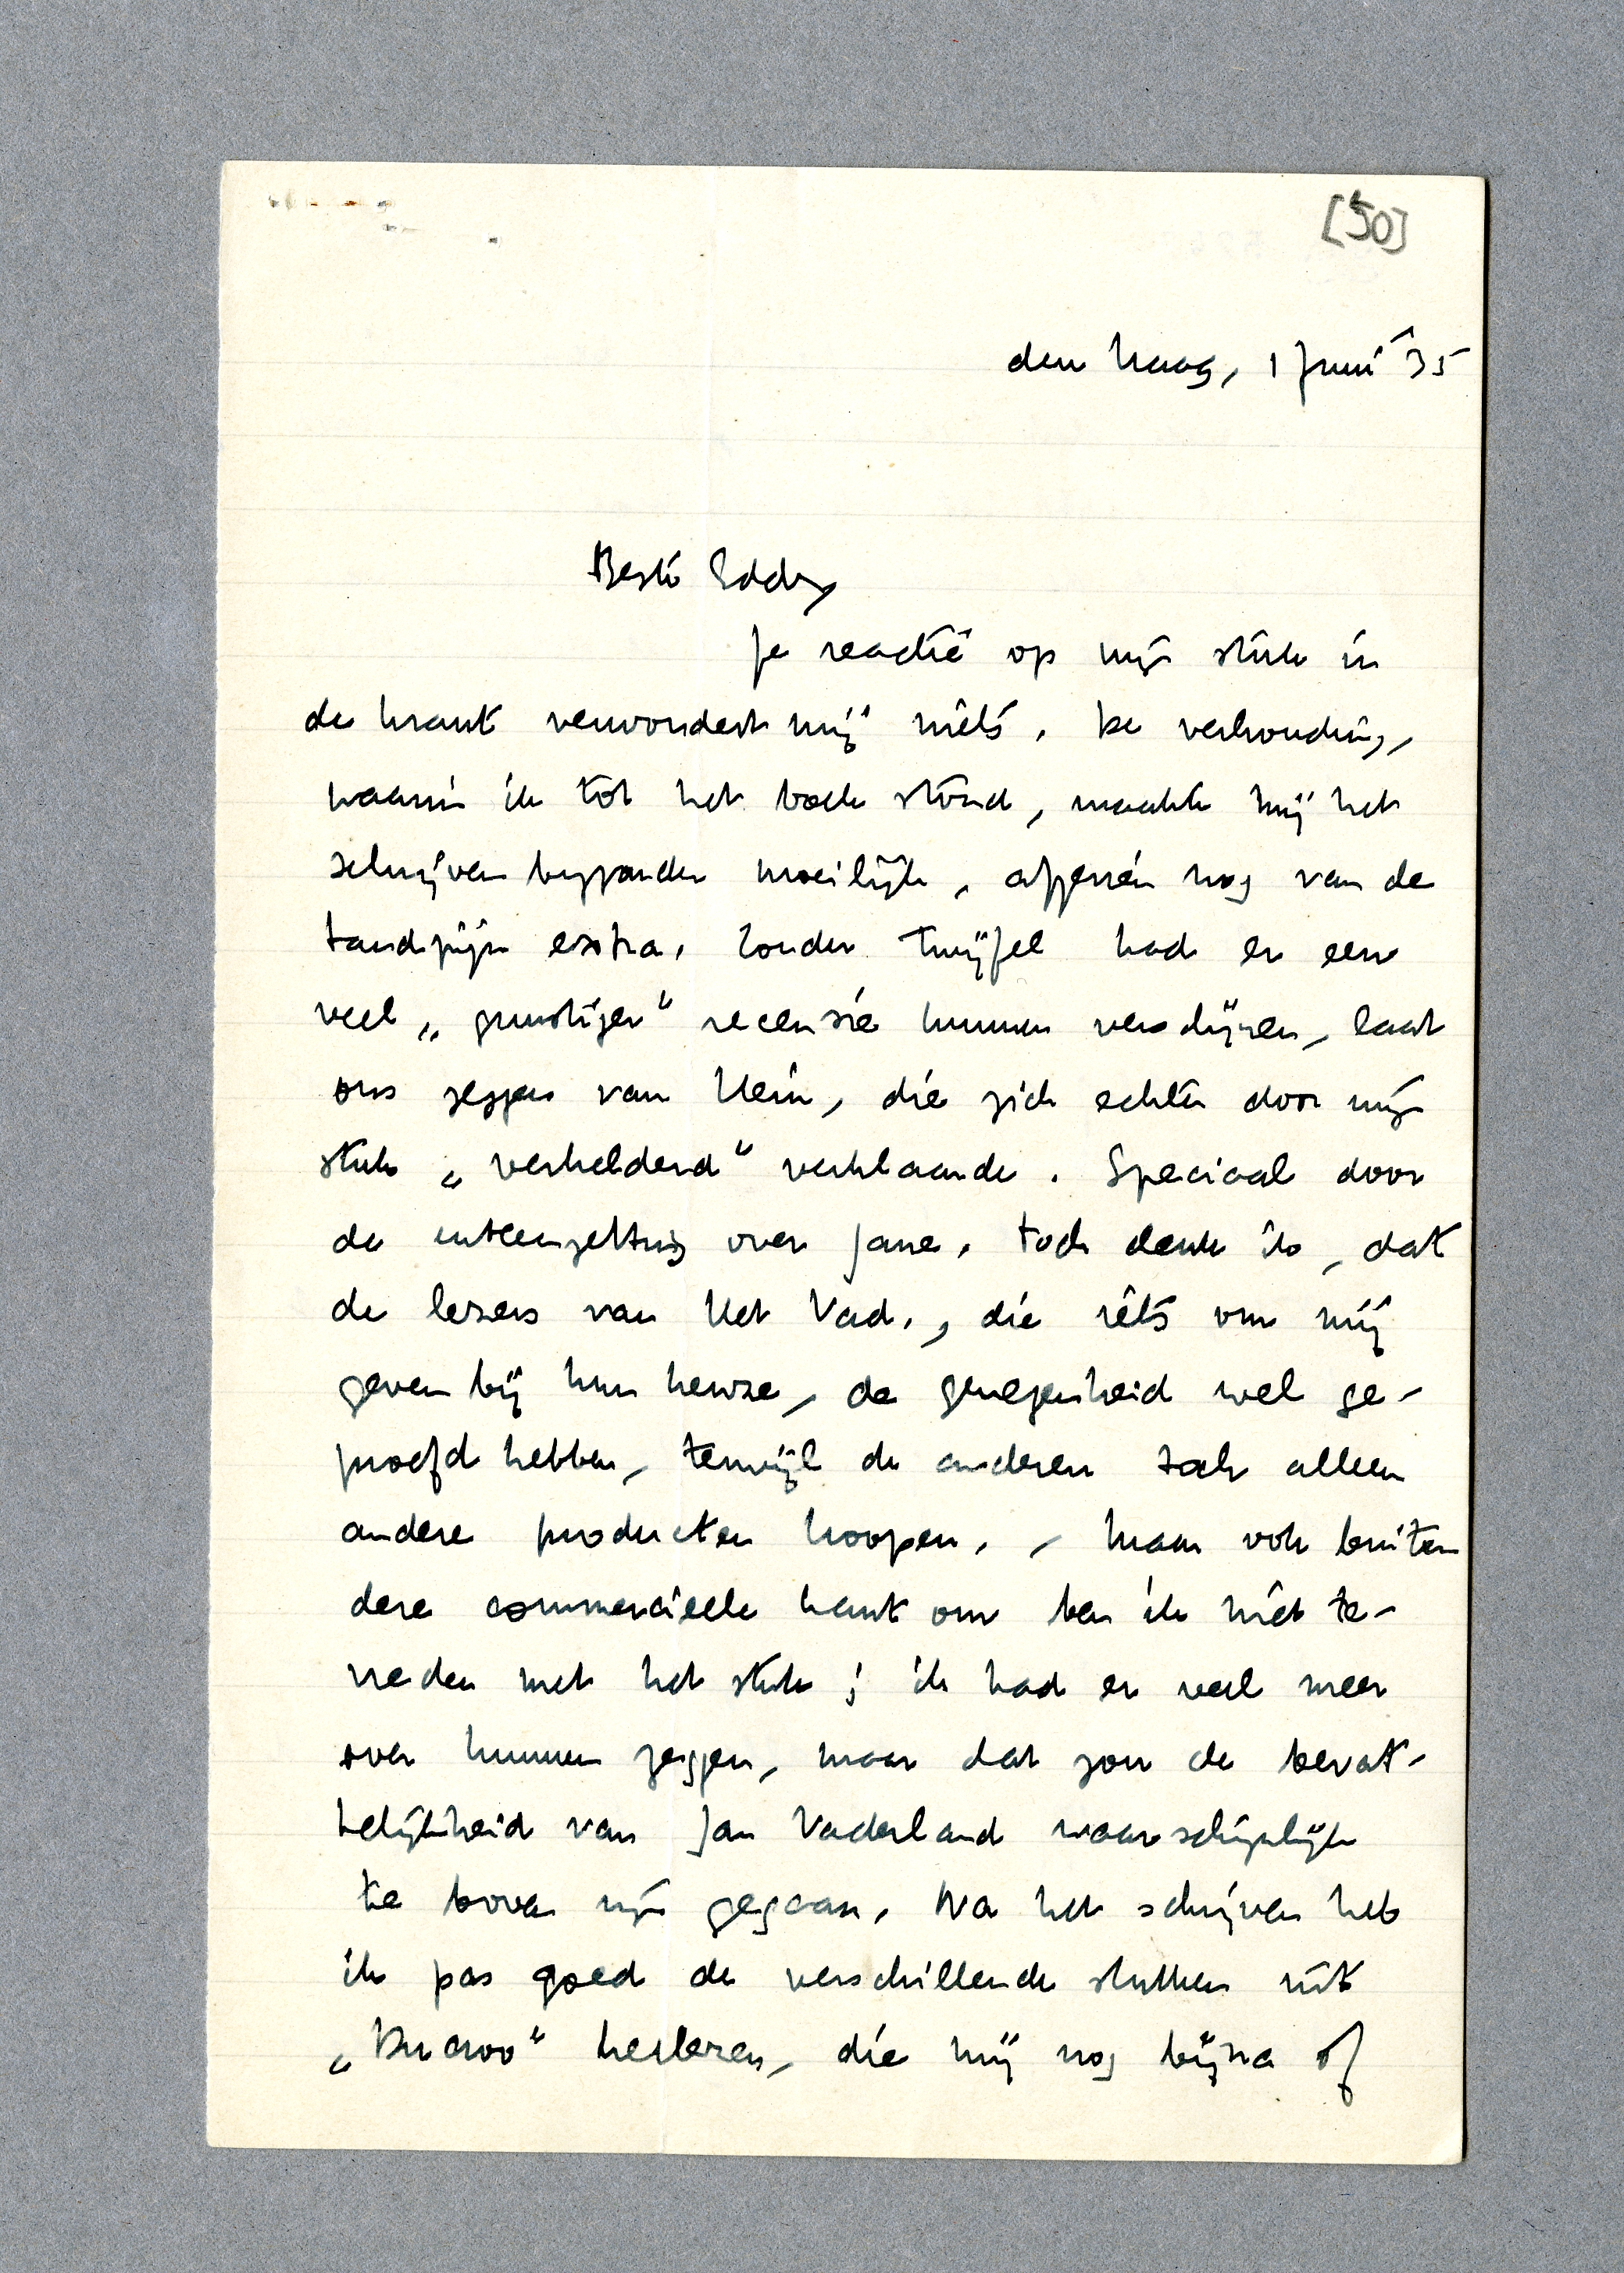 [50]
den Haag, 1 Juni '35
Beste Eddy
Je reactie op mijn stuk in
de krant verwondert mij niets. De verhouding,
waarin ik tot het boek stond, maakte mij het
schrijven bijzonder moeilijk, afgezien nog van de
tandpijn extra. Zonder twijfel had er een
veel „gunstiger" recensie kunnen verschijnen, laat
ons zeggen van Hein, die zich echter door mijn
stuk „verhelderd" verklaarde. Speciaal door
de uiteenzetting over Jane. Toch denk ik, dat
de lezers van Het Vad., die iets om mij
geven bij hun keuze, de genegenheid wel ge-
proefd hebben, terwijl de anderen toch alleen
andere producten koopen. – Maar ook buiten
deze commercieele kant om ben ik niet te-
vreden met het stuk; ik had er veel meer
over kunnen zeggen, maar dat zou de bevat-
telijkheid van Jan Vaderland waarschijnlijk
te boven zijn gegaan. Na het schrijven heb
ik pas goed de verschillende stukken uit
„Ducroo" herlezen, die mij nog bijna of